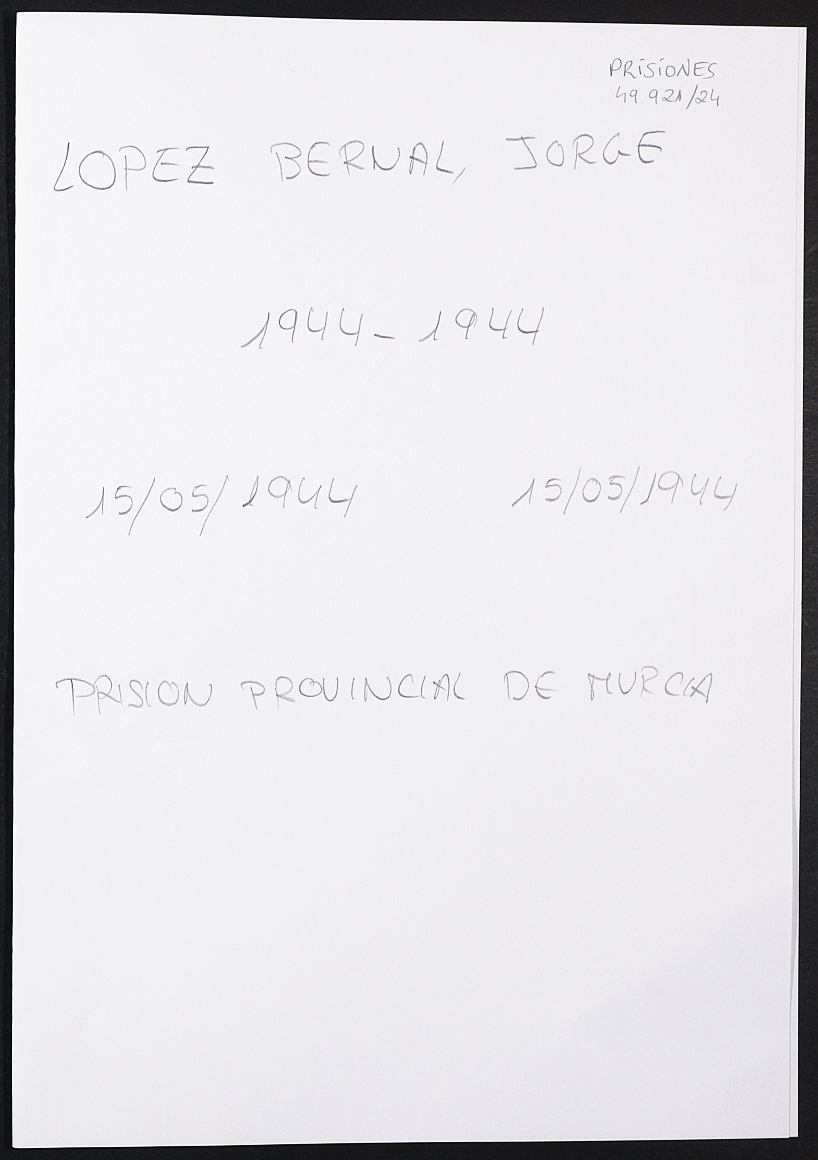 PRISIONES
49.921/24
LOPEZ BERNAL, JORGE
1944-1944
15/05/1944 15/05/1944
PRISION PROVINCIAL DE MURCIA